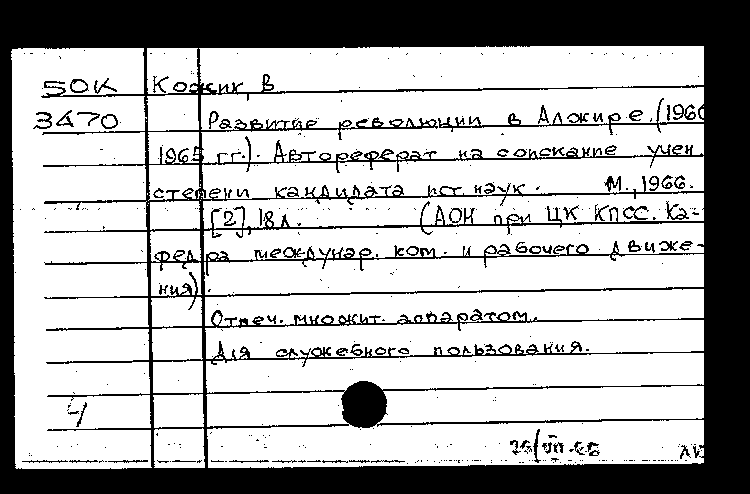 50К Кожик, В
3470 Развитие революции в Алжире. (1960
1965 гг.). Автореферат на соискание учен.
степени кандидата ист. наук. М., 1966.
[2], 18л. (АОН при ЦК КПСС. Ка-
федра междунар. ком. и рабочего движе-
ния).
Отпеч. множит. аппаратом.
Для служебного пользования.
4
26/VII-66